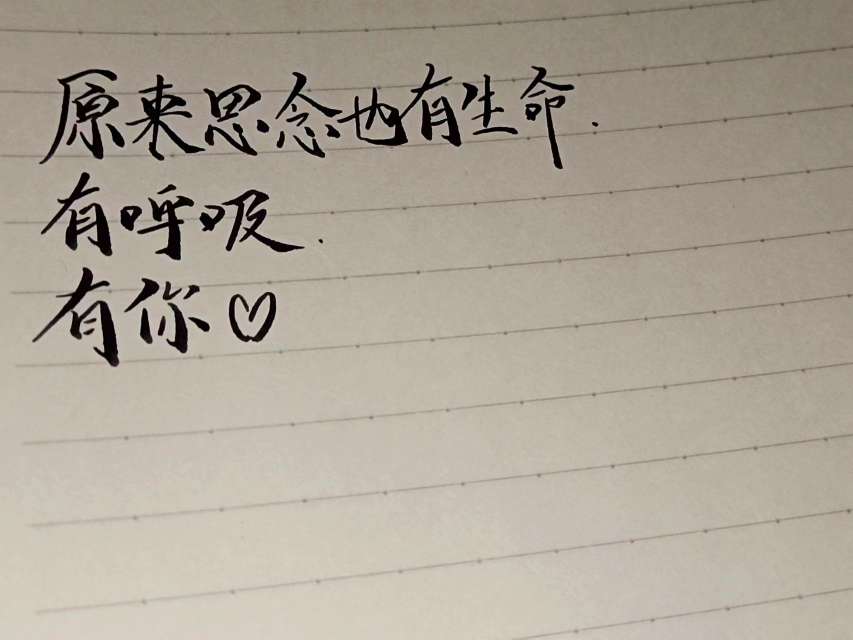 原来思念也有生命.
有呼吸.
有你♡